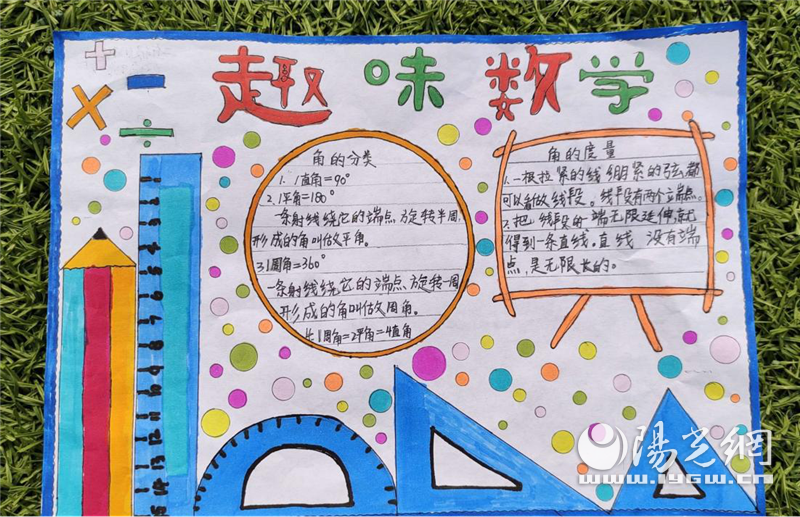 趣味数学
角的分类
1. 1直角=90°
2.1平角=180°
一条射线绕它的端点,旋转半周,
形成的角叫做平角。
3.1周角=360°
一条射线绕它的端点,旋转一周
形成的角叫做周角。
1周角=2平角=4直角
角的度量
1.一根拉紧的线绷紧的弦都
可以看做线段。线段有两个端点。
2.把线段的一端无限延伸就
得到一条直线。直线没有端
点,是无限长的。
陽光網
www.iygw.cn